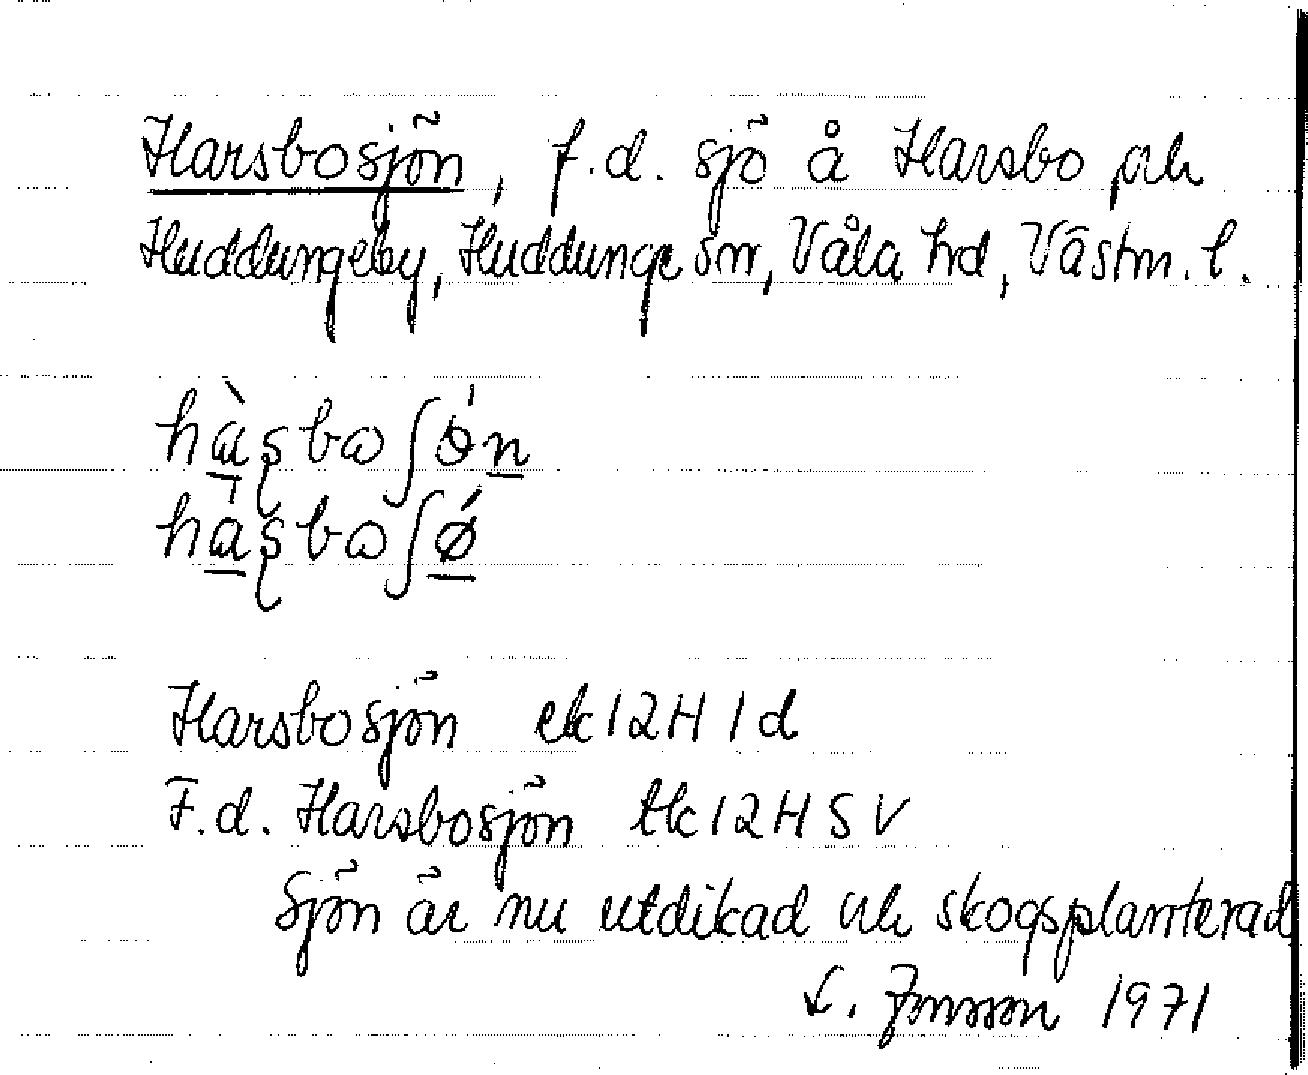 Harsbosjön, f.d. sjö å Harsbo och
Huddungeby, Huddunge sn, Våla hd, Västm. l.
hàʂbɷʃǿn
hàʂbɷʃǿ
Harsbosjön ek 12H 1d
F.d. Harsbosjön tk 12H SV
Sjön är nu utdikad och skogsplanterad
Jonsson 1971